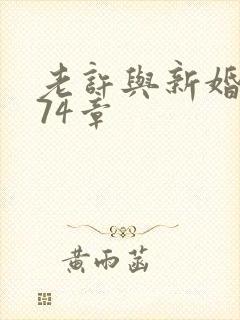 老許與新婚
74章
黃雨菡